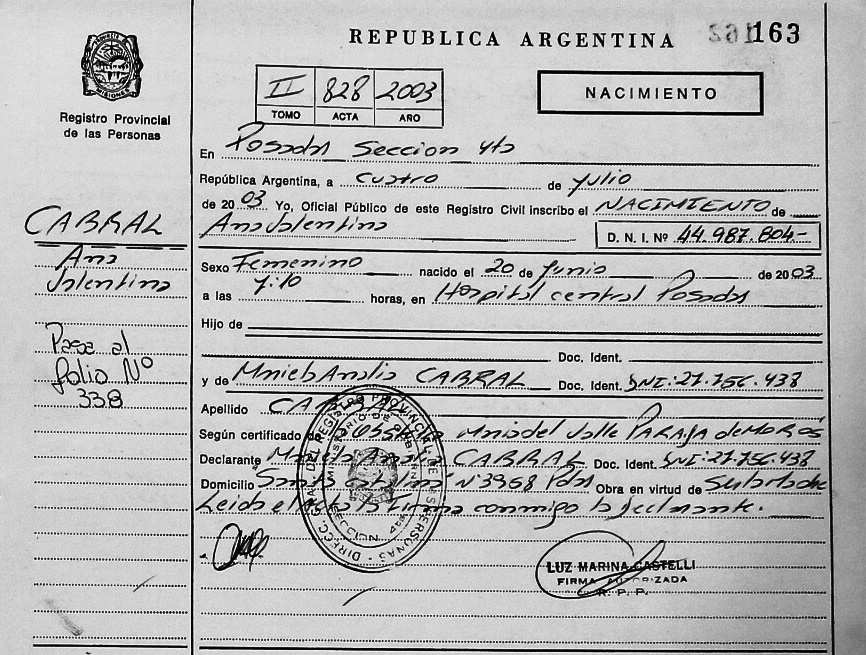 REPUBLICA ARGENTINA
163
MISIONES
Registro Provincial
de las Personas
II 828 2003
TOMO ACTA AÑO
NACIMIENTO
CABRAL
Ana
Valentina
Pasa al
folio Nº
338
En Posadas Seccion 4ta
República Argentina, a cuatro de Julio
de 2003 Yo, Oficial Público de este Registro Civil inscribo el NACIMIENTO de
Ana Valentina D. N. I. Nº 44.987.804-
Sexo Femenino nacido el 20 de Junio de 2003
a las 7:10 horas, en Hospital central Posadas
Hijo de
Doc. Ident.
y de Analia CABRAL Doc. Ident. DNI: 27.756.438
Apellido
Según certificado del Valle de MOROS
Declarante CABRAL Doc. Ident. DNI: 27.756.438
Domicilio Santa Catalina Nº 3958 Pdas Obra en virtud de
Leida el acta la firma conmigo la declarante.
DIRECC. GRAL. DEL REGISTRO PROVINCIAL DE LAS PERSONAS
MINISTERIO DE GOBIERNO
SECCION 4ta
LUZ MARINA CASTELLI
FIRMA AUTORIZADA
R. P. P.